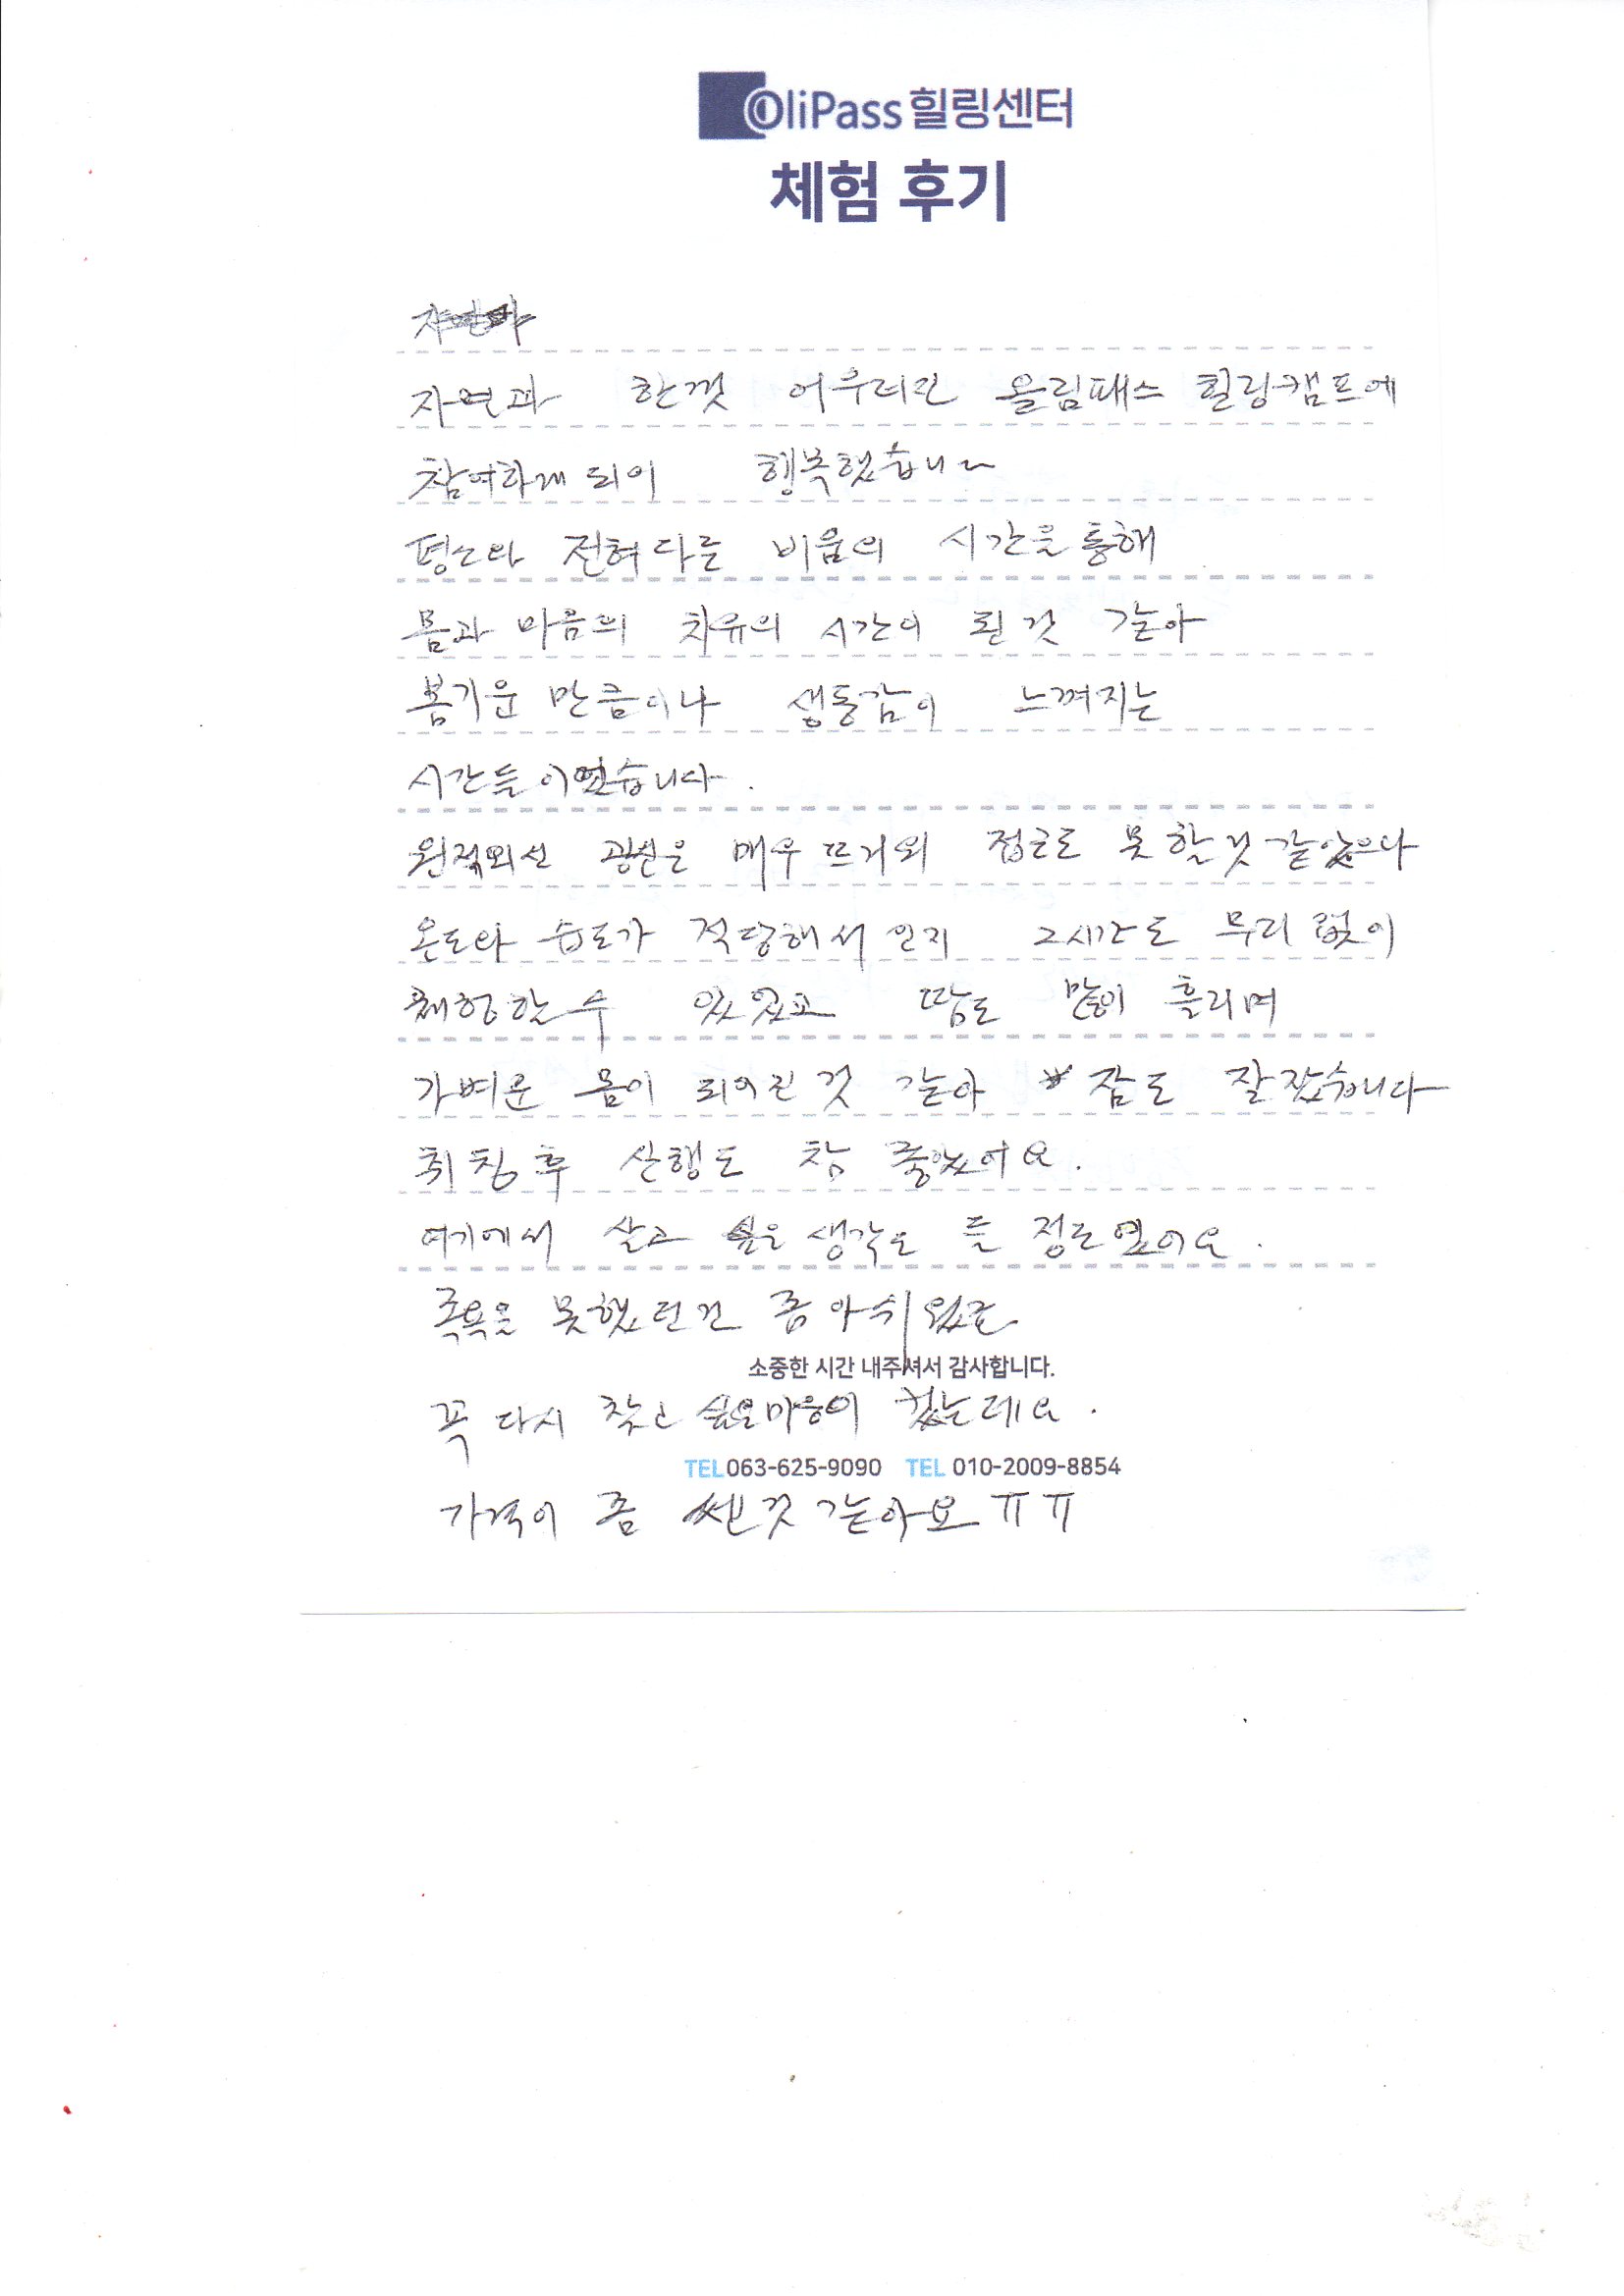 OliPass 힐링센터
체험 후기
자연과 한껏 어우러진 올림패스 힐링캠프에
참여하게 되어 행복했습니다
평소와 전혀 다른 비움의 시간을 통해
몸과 마음의 치유의 시간이 된 것 같아
봄기운 만큼이나 생동감이 느껴지는
시간들 이었습니다.
원적외선 광선은 매우 뜨거워 접근도 못 할것 같았으나
온도와 습도가 적당해서 인지 2시간도 무리 없이
체험할 수 있었고 땀도 많이 흘리며
가벼운 몸이 되어진 것 같아 잠도 잘 잤습니다
취침 후 산행도 참 좋았어요.
여기에서 살고 싶은 생각도 들 정도였어요.
족욕을 못했던건 좀 아쉬웠고
소중한 시간 내주셔서 감사합니다.
꼭 다시 찾고 싶은마음이 컸는데요.
TEL 063-625-9090 TEL 010-2009-8854
가격이 좀 쎈것 같아요 ㅠㅠ